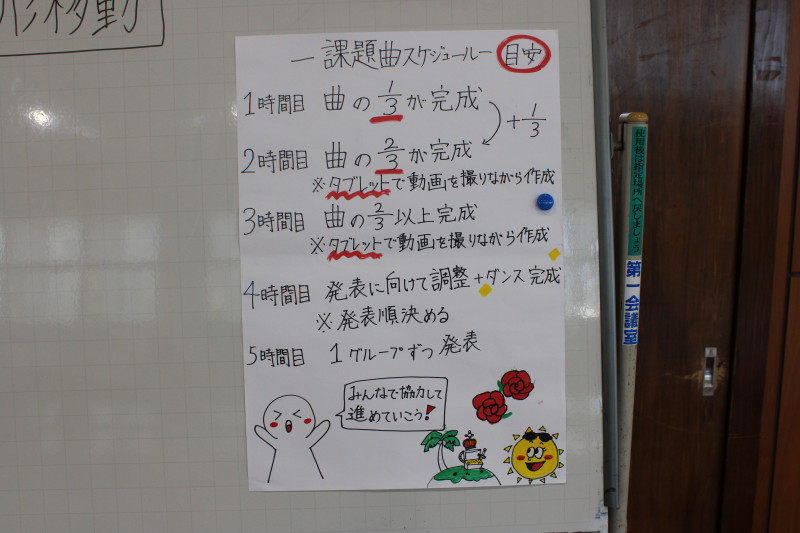 形移動
一課題曲スケジュール一 目安
1時間目 曲の1/3が完成
+1/3
2時間目 曲の2/3が完成
※タブレットで動画を撮りながら作成
3時間目 曲の2/3以上完成
※タブレットで動画を撮りながら作成
4時間目 発表に向けて調整+ダンス完成
※発表順決める
5時間目 1グループずつ発表
みんなで協力して
進めていこう!
使用後は指定場所へ戻しましょう
第一会議室